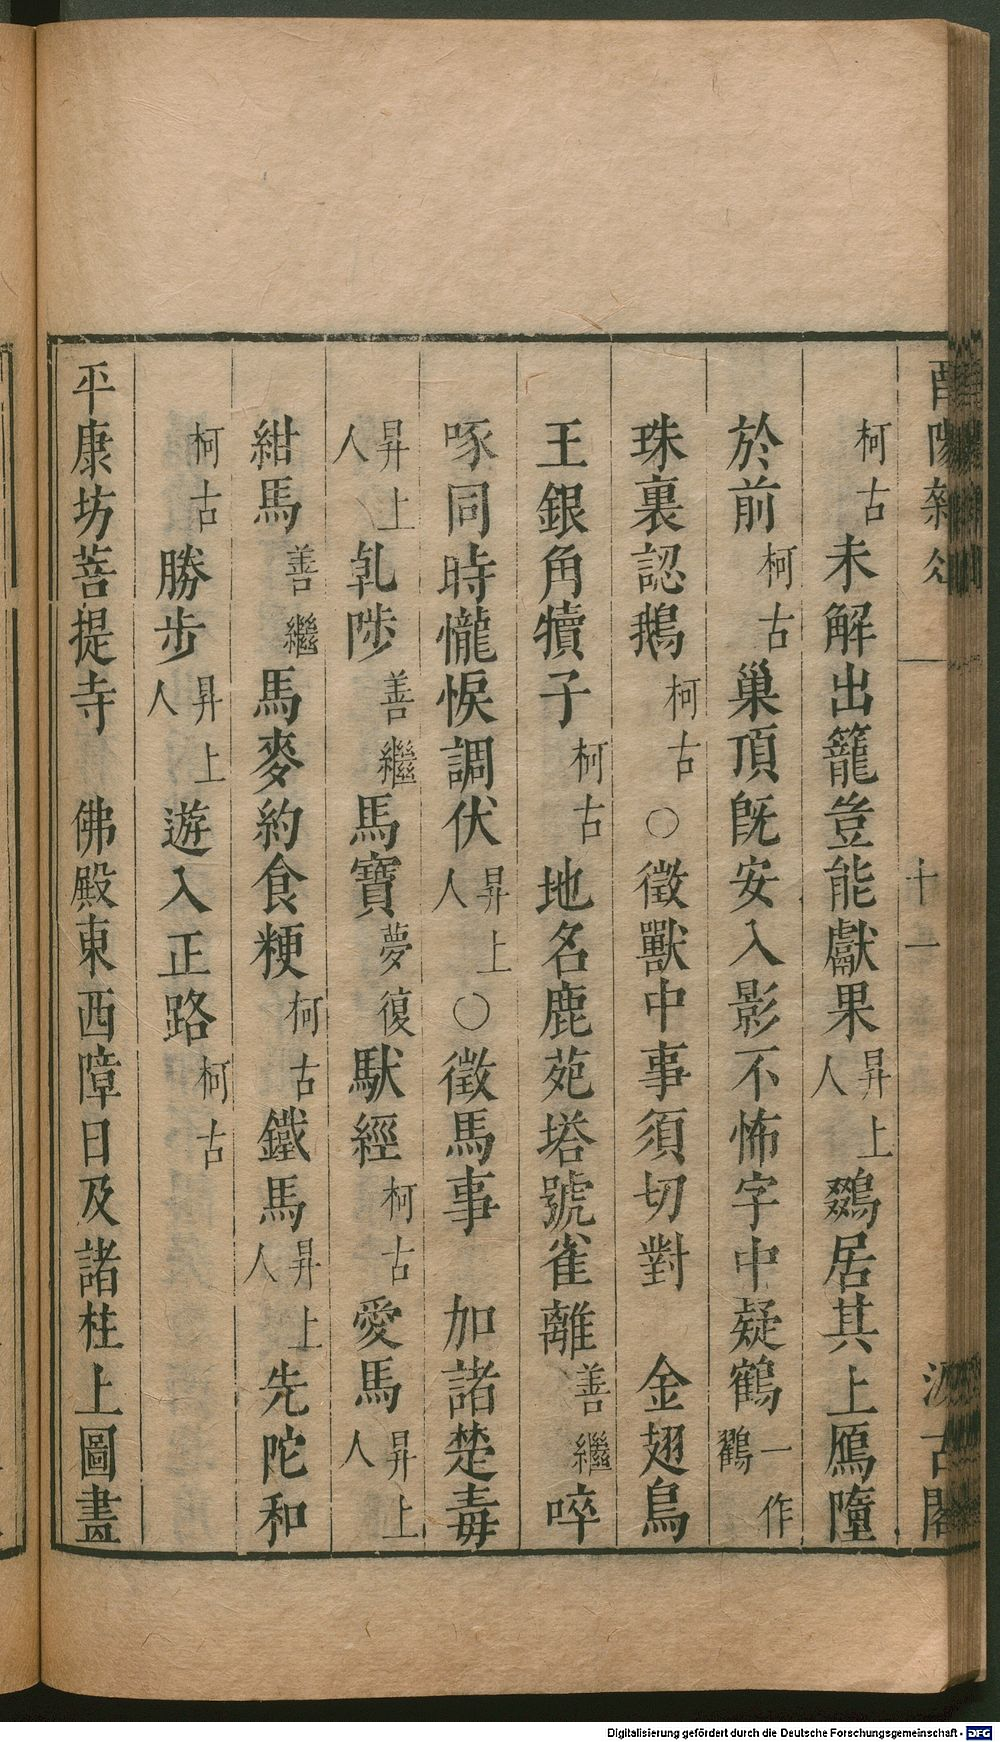 酉陽雜俎 十一 汲古閣
柯古未解出籠豈能獻果昇上人鷄居其上鴈墮
於前柯古巢頂旣安入影不怖字中疑鶴一作鸛
珠裏認鵝柯古○徵獸中事須切對 金翅鳥
王銀角犢子柯古地名鹿苑塔號雀離善繼啐
啄同時𢤱悷調伏昇上人○徵馬事 加諸楚毒
昇上人乹陟善繼馬寶夢復馱經柯古愛馬昇上人
紺馬善繼馬麥約食粳柯古鐵馬昇上人先陀和
柯古勝步昇上人遊入正路柯古
平康坊菩提寺 佛殿東西障日及諸柱上圖畫
Digitalisierung gefördert durch die Deutsche Forschungsgemeinschaft - DFG